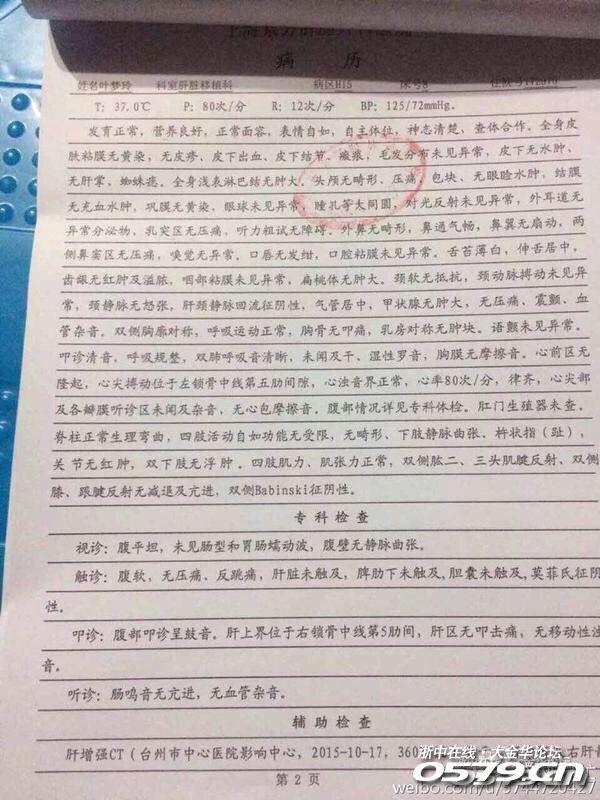 病 历
姓名叶梦玲 科室肝脏移植科 病区H15 床号8
T: 37.0℃ P: 80次/分 R: 12次/分 BP: 125/72mmHg.
发育正常，营养良好，正常面容，表情自如，自主体位，神志清楚，查体合作。全身皮
肤粘膜无黄染，无皮疹、皮下出血、皮下结节、瘢痕，毛发分布未见异常，皮下无水肿，
无肝掌、蜘蛛痣。全身浅表淋巴结无肿大。头颅无畸形、压痛、包块、无眼睑水肿，结膜
无充血水肿，巩膜无黄染、眼球未见异常，瞳孔等大同圆，对光反射未见异常，外耳道无
异常分泌物，乳突区无压痛，听力粗试无障碍。外鼻无畸形，鼻通气畅，鼻翼无扇动，两
侧鼻窦区无压痛，嗅觉无异常。口唇无发绀，口腔粘膜未见异常。舌苔薄白，伸舌居中，
齿龈无红肿及溢脓，咽部粘膜未见异常，扁桃体无肿大。颈软无抵抗，颈动脉搏动未见异
常，颈静脉无怒张，肝颈静脉回流征阴性，气管居中，甲状腺无肿大，无压痛、震颤、血
管杂音。双侧胸廓对称，呼吸运动正常，胸骨无叩痛，乳房对称无肿块。语颤未见异常。
叩诊清音，呼吸规整，双肺呼吸音清晰，未闻及干、湿性罗音，胸膜无摩擦音。心前区无
隆起，心尖搏动位于左锁骨中线第五肋间隙，心浊音界正常，心率80次/分，律齐，心尖部
及各瓣膜听诊区未闻及杂音，无心包摩擦音。腹部情况详见专科体检。肛门生殖器未查。
脊柱正常生理弯曲，四肢活动自如功能无受限，无畸形、下肢静脉曲张、杵状指（趾），
关节无红肿，双下肢无浮肿。四肢肌力、肌张力正常，双侧肱二、三头肌腱反射、双侧
膝、跟腱反射无减退及亢进，双侧Babinski征阴性。
专科检查
视诊：腹平坦，未见肠型和胃肠蠕动波，腹壁无静脉曲张。
触诊：腹软，无压痛、反跳痛，肝脏未触及，脾肋下未触及，胆囊未触及，莫菲氏征阴
性。
叩诊：腹部叩诊呈鼓音。肝上界位于右锁骨中线第5肋间，肝区无叩击痛，无移动性浊
音。
听诊：肠鸣音无亢进，无血管杂音。
辅助检查
肝增强CT（台州市中心医院影响中心，2015-10-17，360
右肝
第 2 页
浙中在线·大金华论坛
0579.cn
weibo.com/u/5744720427